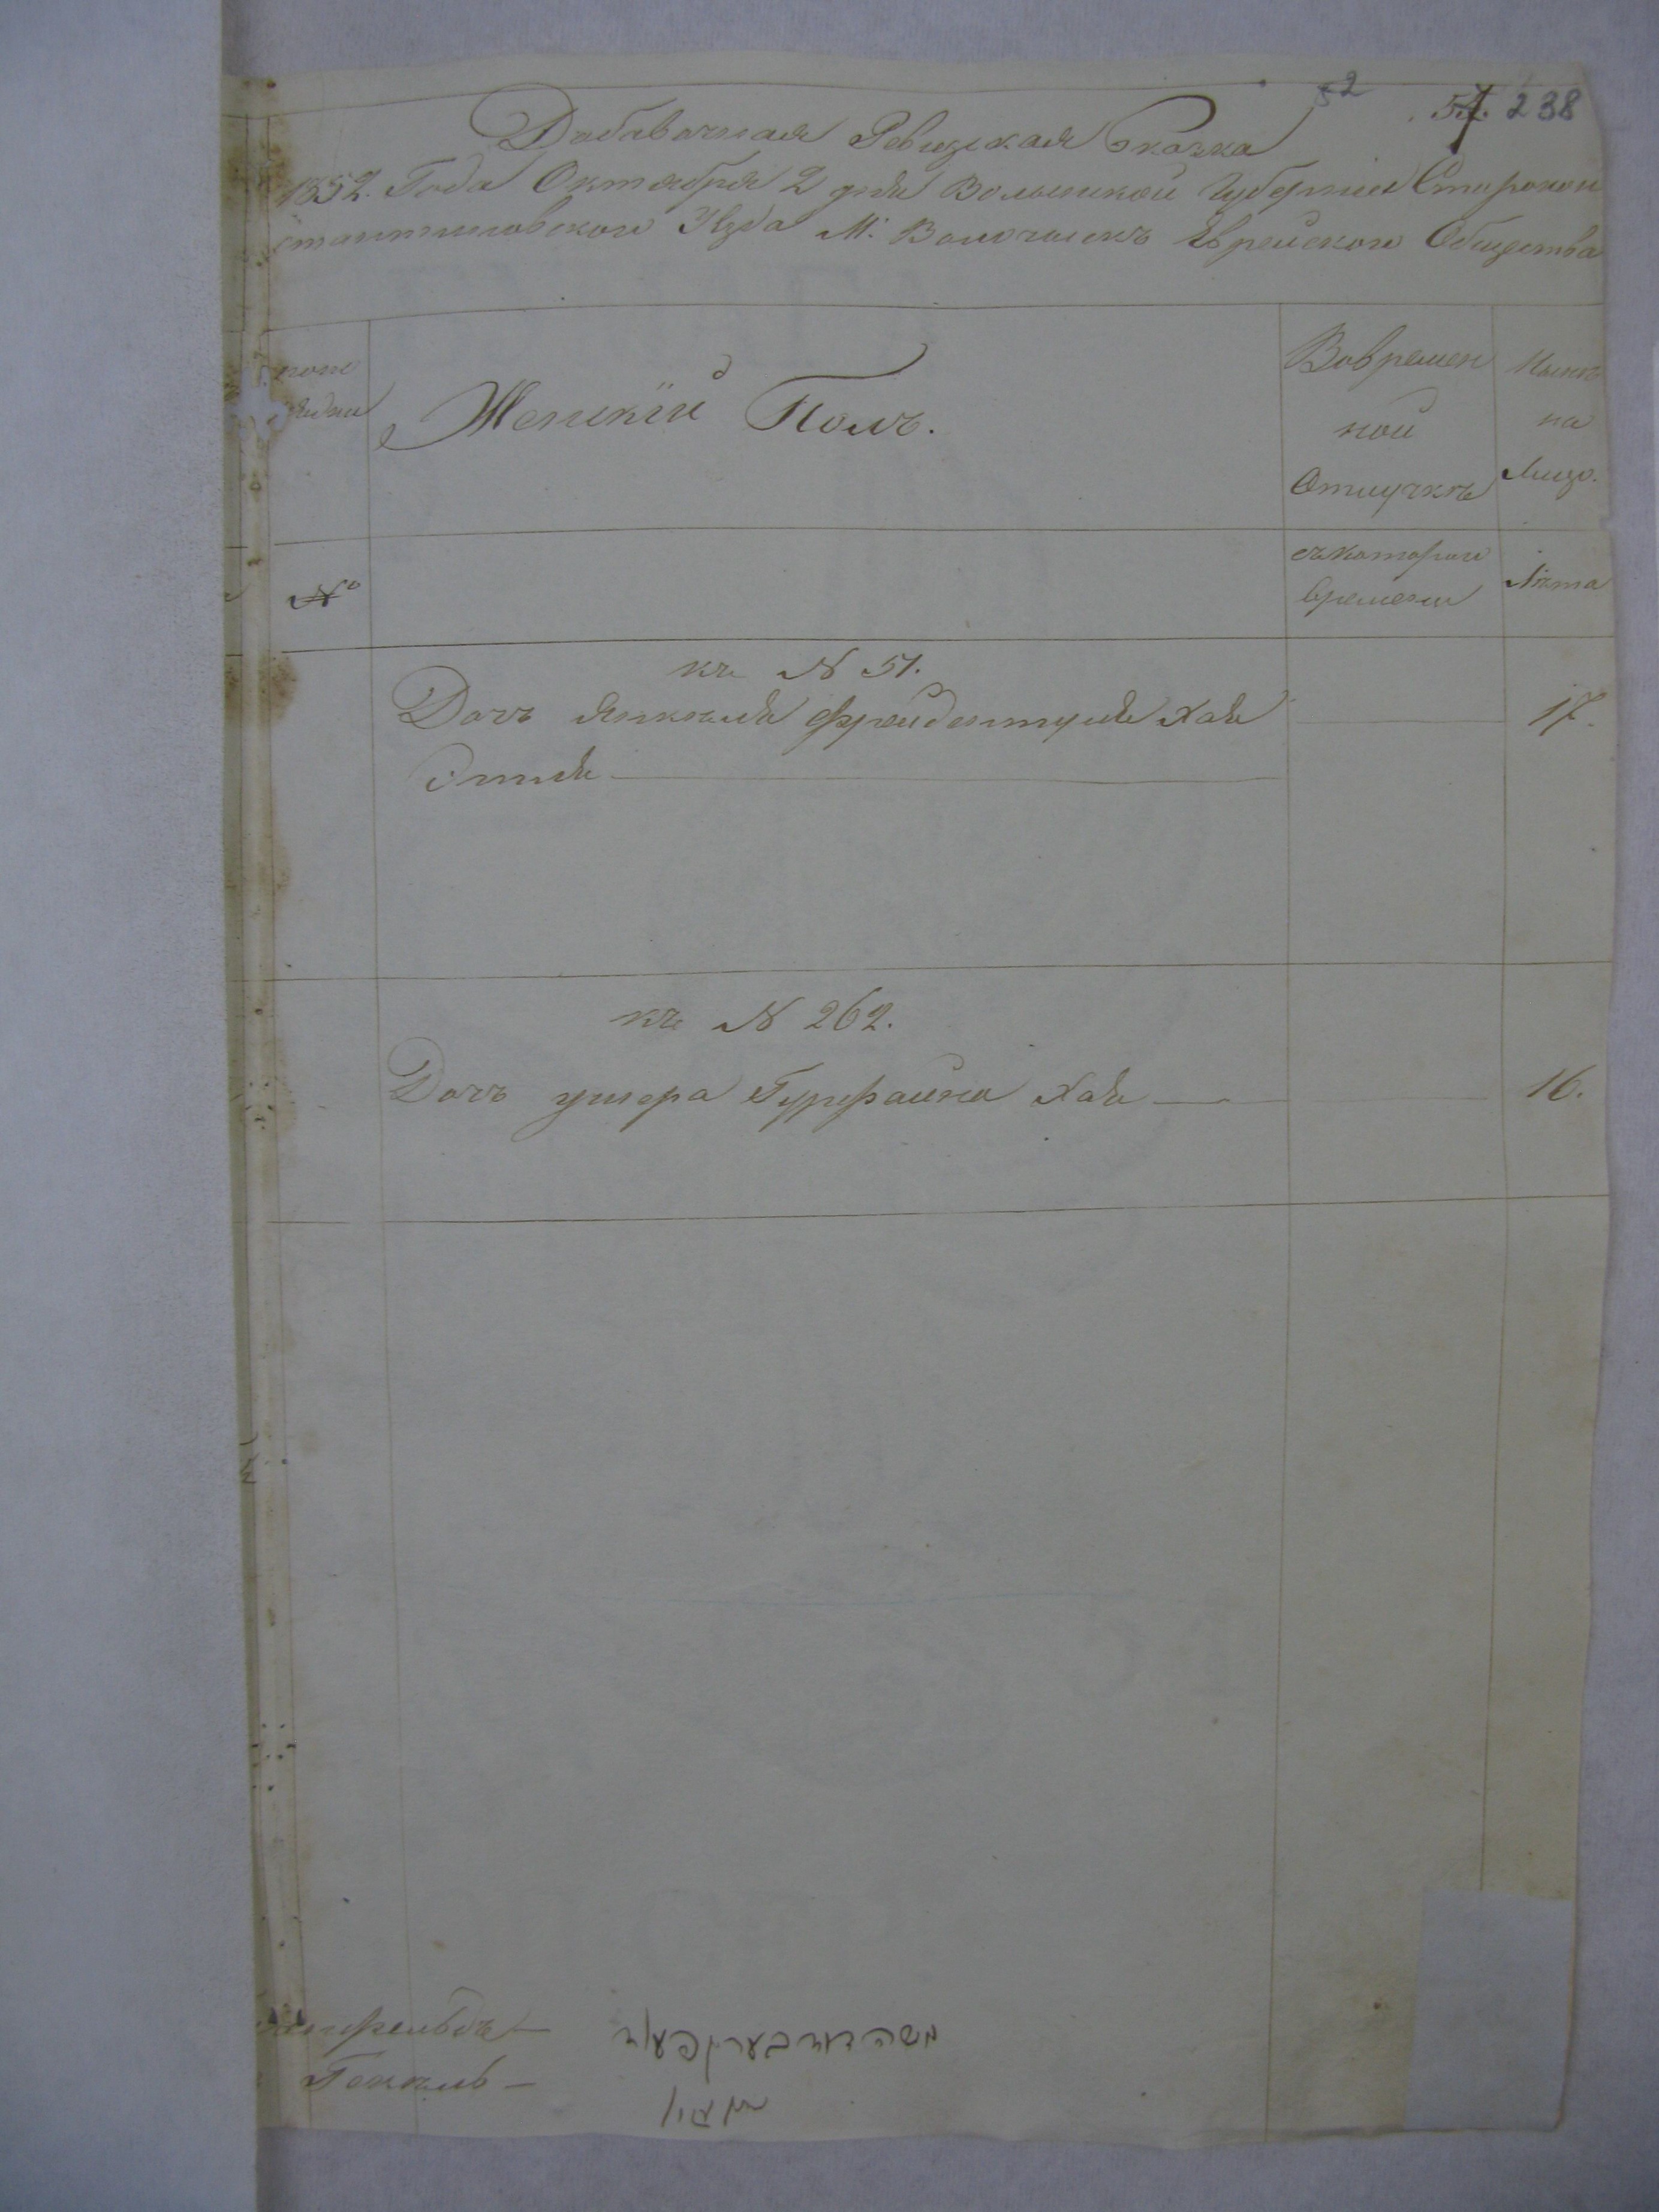 52 57. 238
Добавочная Ревизская Сказка
1852. Года Октября 2 дня Волынской Губернии Старокон
стантиновского Уезда М. Волочискъ Еврейского Общества
Женскій Полъ.
Вовремен
ной
Отлучкѣ
Нынѣ
на
Лицо.
№
съкоторого
времени
Лѣта
къ N 51.
Дочь Янкеля Фрейдентуля Хая 17.
къ N 262.
Дочь ушера Гурфайна Хая 16.
משה דוד בערנפעלד